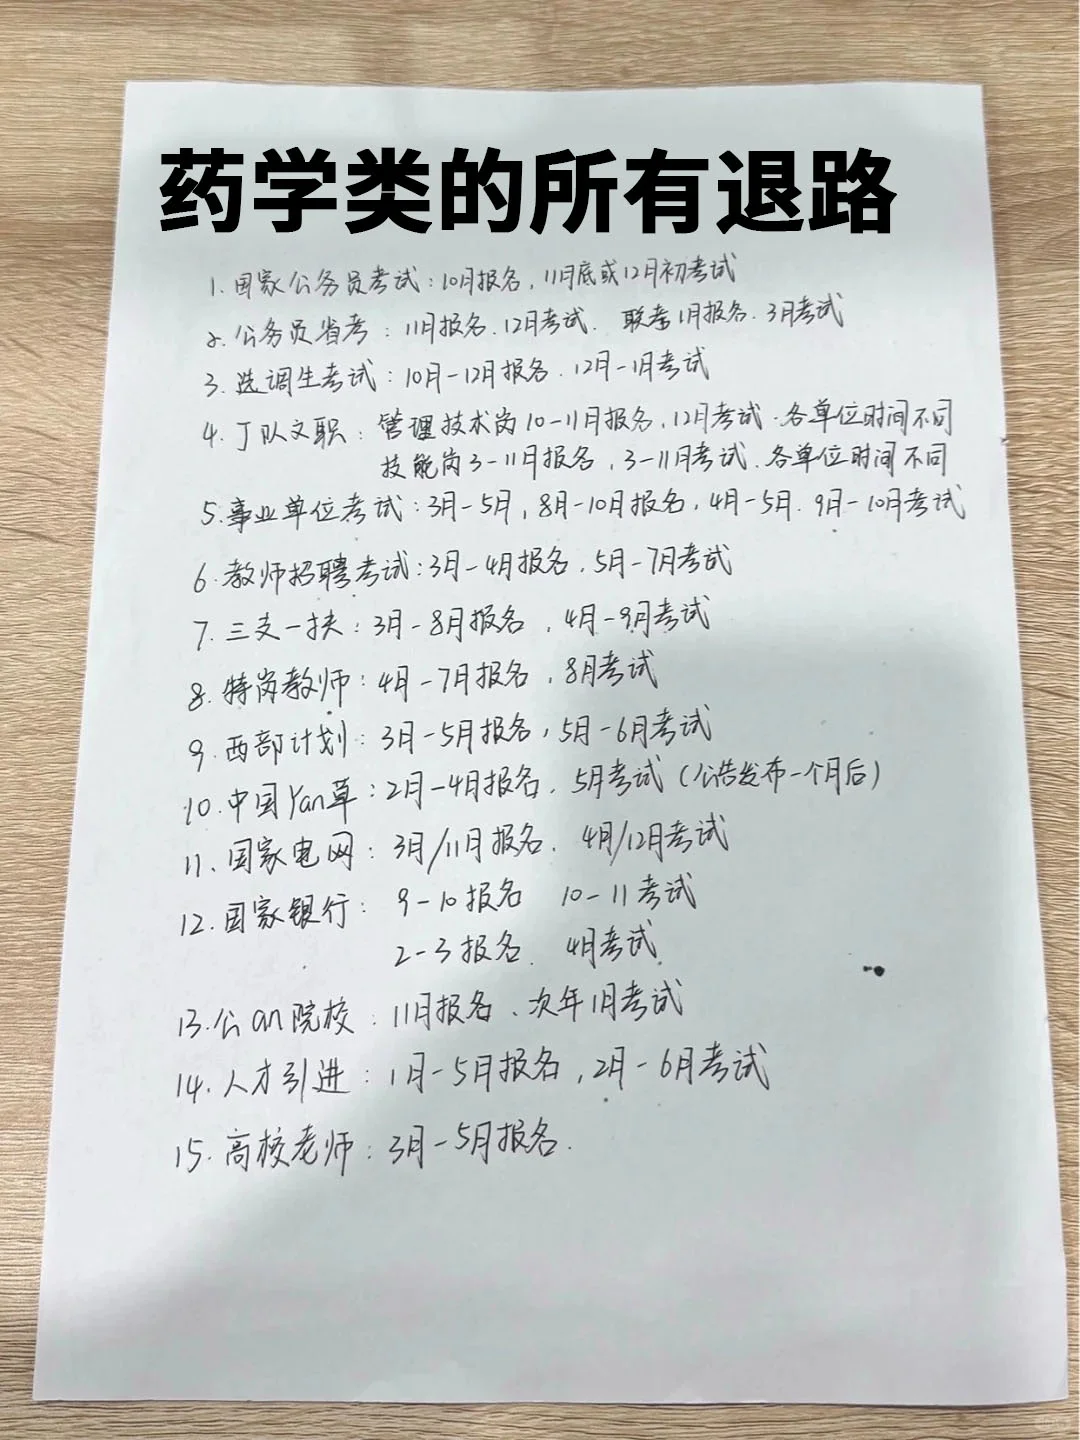 药学类的所有退路
1.国家公务员考试:10月报名,11月底或12月初考试
2.公务员省考:11月报名.12月考试. 联考1月报名.3月考试
3.选调生考试:10月-12月报名.12月-1月考试
4.丁队文职:管理技术岗10-11月报名,12月考试.各单位时间不同
技能岗3-11月报名,3-11月考试.各单位时间不同
5.事业单位考试:3月-5月,8月-10月报名,4月-5月.9月-10月考试
6.教师招聘考试:3月-4月报名,5月-7月考试
7.三支一扶:3月-8月报名,4月-9月考试
8.特岗教师:4月-7月报名,8月考试
9.西部计划:3月-5月报名,5月-6月考试
10.中国Yan草:2月-4月报名,5月考试(公告发布一个月后)
11.国家电网:3月/11月报名. 4月/12月考试
12.国家银行:9-10报名 10-11考试
2-3报名. 4月考试
13.公an院校:11月报名、次年1月考试
14.人才引进:1月-5月报名,2月-6月考试
15.高校老师:3月-5月报名.